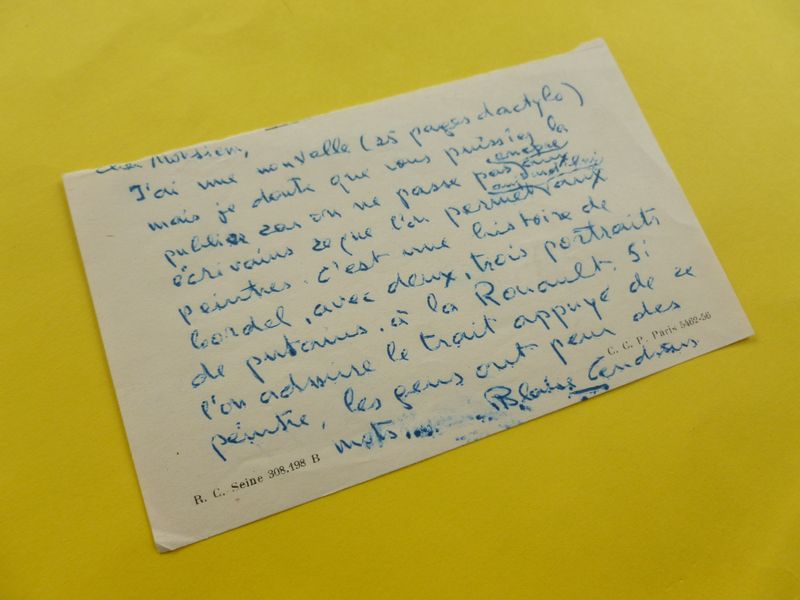 Cher Monsieur,
J'ai une nouvelle (25 pages dactylo)
mais je doute que vous puissiez la
publier car on ne passe pas encore aux
écrivains ce que l'on permet aux
peintres. C'est une histoire de
bordel, avec deux, trois portraits
de putains, à la Rouault. Si
l'on admire le trait appuyé de ce
peintre, les gens ont peur des
mots...
Blaise Cendrars
R. C. Seine 308.198 B
C. C. P. Paris 5462-56